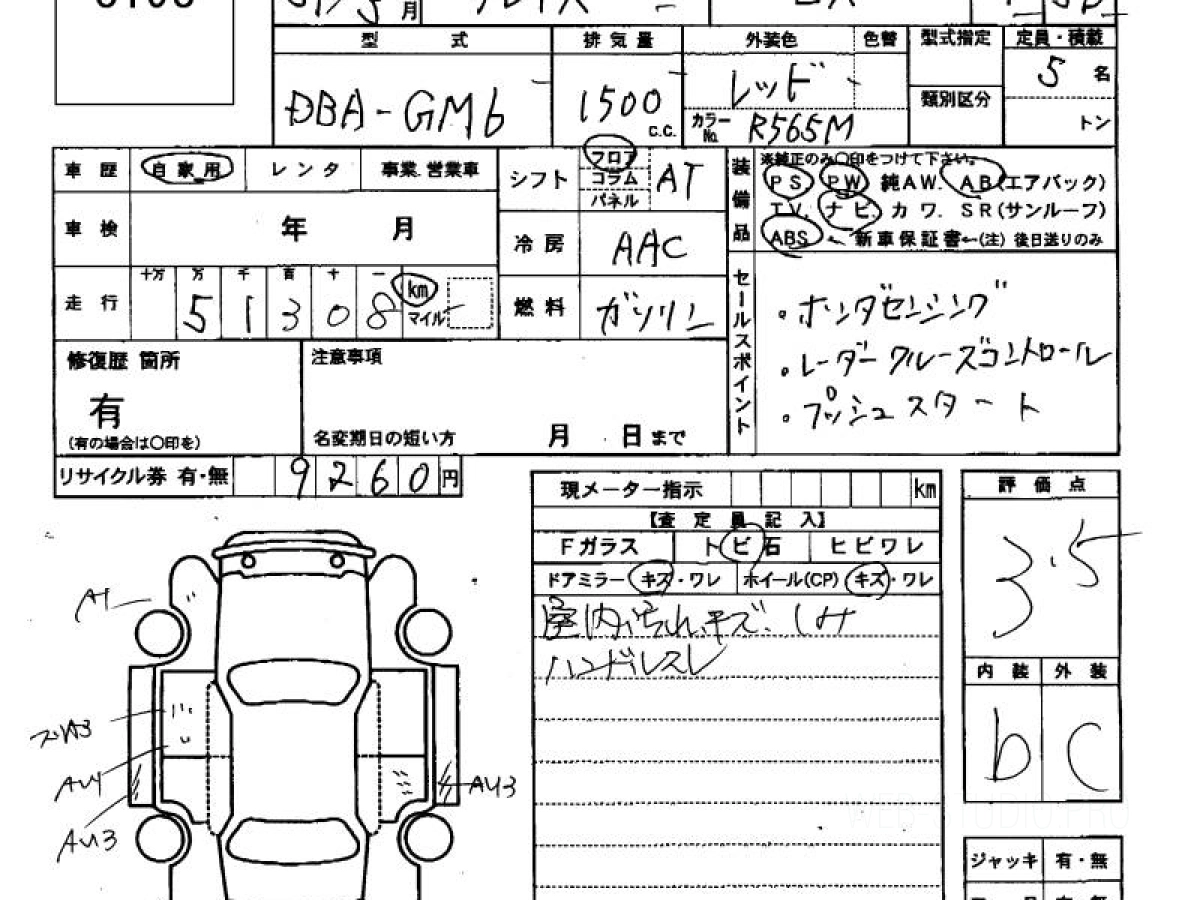 月
型 式 排気量 外装色 色替 型式指定 定員・積載
DBA-GM6 1500 c.c. レッド 5 名
カラーNo. R565M 類別区分 トン
車歴 自家用 レンタ 事業.営業車 シフト フロア コラム パネル AT
装備品 ※純正のみ○印をつけて下さい。
PS PW 純AW. AB(エアバック)
TV. ナビ. カワ. SR(サンルーフ)
ABS 新車保証書←(注) 後日送りのみ
車検 年 月 冷房 AAC
走行 十万 万 千 百 十 一 km マイル
5 1 3 0 8
燃料 ガソリン
セールスポイント
・ホンダセンシング
・レーダークルーズコントロール
・プッシュスタート
修復歴 箇所 注意事項
有
(有の場合は○印を) 名変期日の短い方 月 日まで
リサイクル券 有・無 9 2 6 0 円
現メーター指示 km 評価点
【査定員記入】
Fガラス トビ石 ヒビワレ 3.5
ドアミラー キズ・ワレ ホイール(CP) キズ・ワレ
A1
室内汚れ、キズ、シミ
ハンドルスレ
内装 外装
b C
AU4
AU3
AU3
ジャッキ 有・無